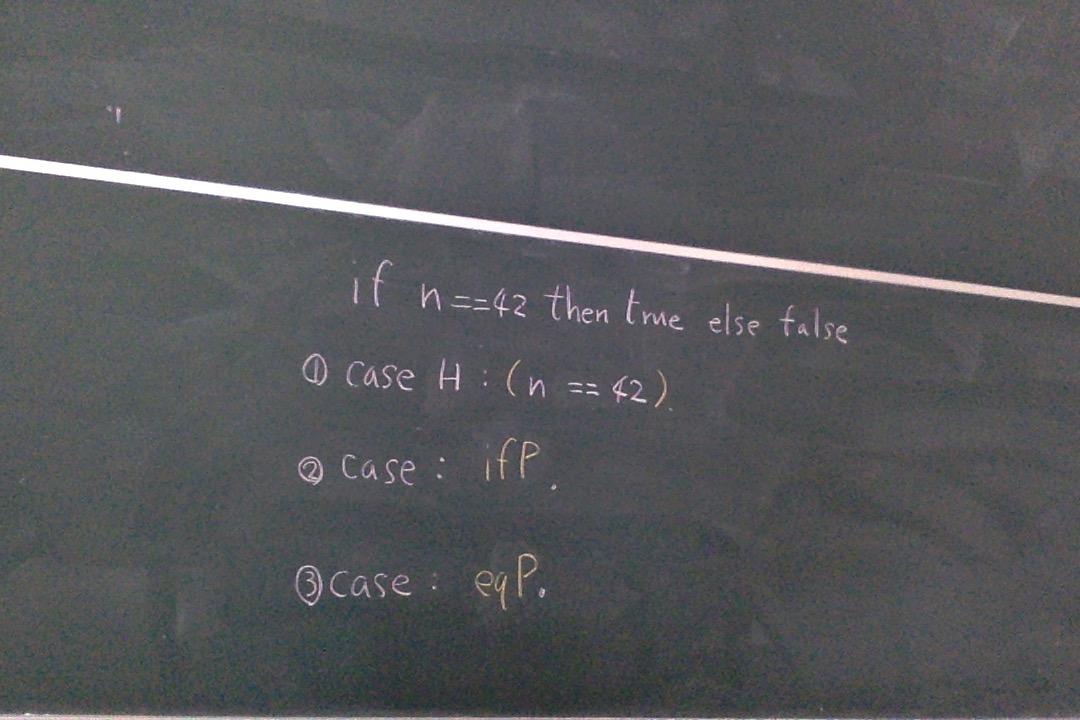 if n==42 then true else false
① case H : (n == 42).
② case : ifP.
③ case : eqP.